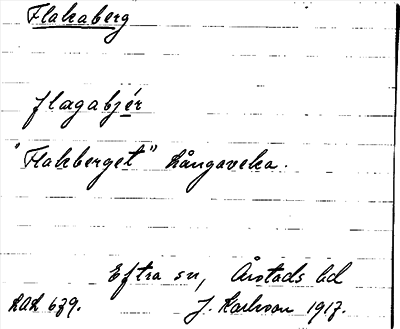 Flakaberg
flagabjér
"Flakberget" Långaveka.
Eftra sn, Årstads hd
LAL 679. J. Karlsson 1917.